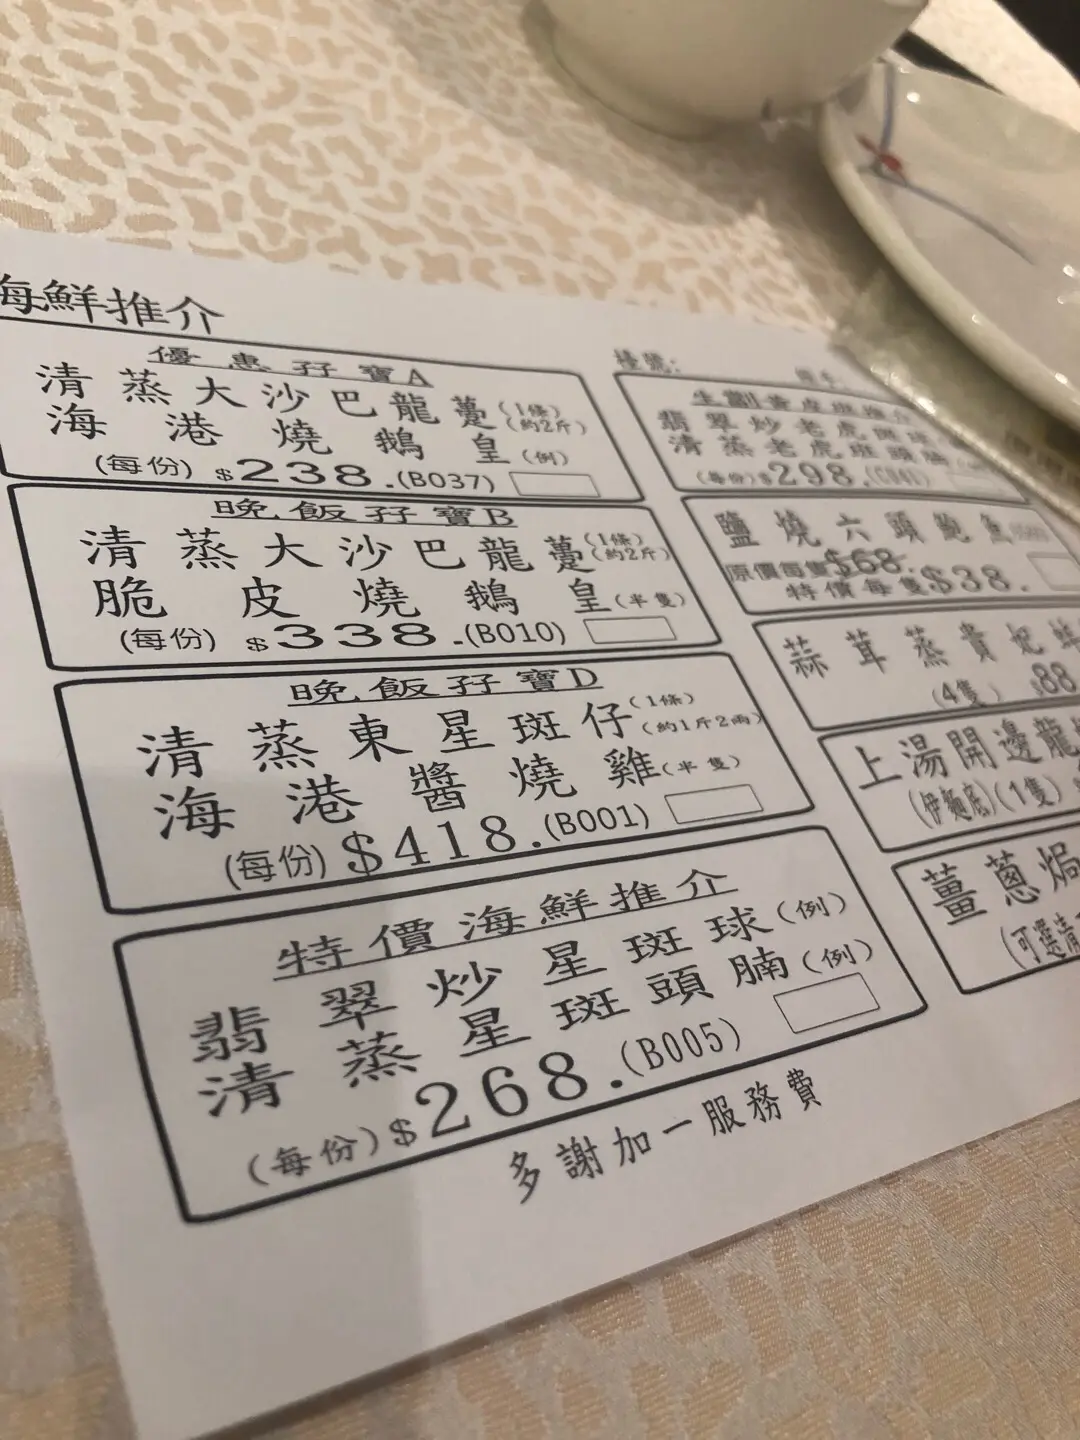 海鮮推介
優惠孖寶A
清蒸大沙巴龍躉(1條)(約2斤)
海港燒鵝皇(例)
(每份) $238.(B037)
晚飯孖寶B
清蒸大沙巴龍躉(1條)(約2斤)
脆皮燒鵝皇(半隻)
(每份) $338.(B010)
晚飯孖寶D
清蒸東星斑仔(1條)(約1斤2兩)
海港醬燒雞(半隻)
(每份) $418.(B001)
特價海鮮推介
翡翠炒星斑球(例)
清蒸星斑頭腩(例)
(每份) $268.(B005)
多謝加一服務費
檯號:
生劏黃皮斑推介
翡翠炒老虎斑球
清蒸老虎斑頭腩
(每份) $298.
鹽燒六頭鮑魚
原價每隻$68.
特價每隻$38.
蒜茸蒸貴妃蚌
(4隻) $88
上湯開邊龍
(伊麵底)(1隻)
薑蔥焗
(可選